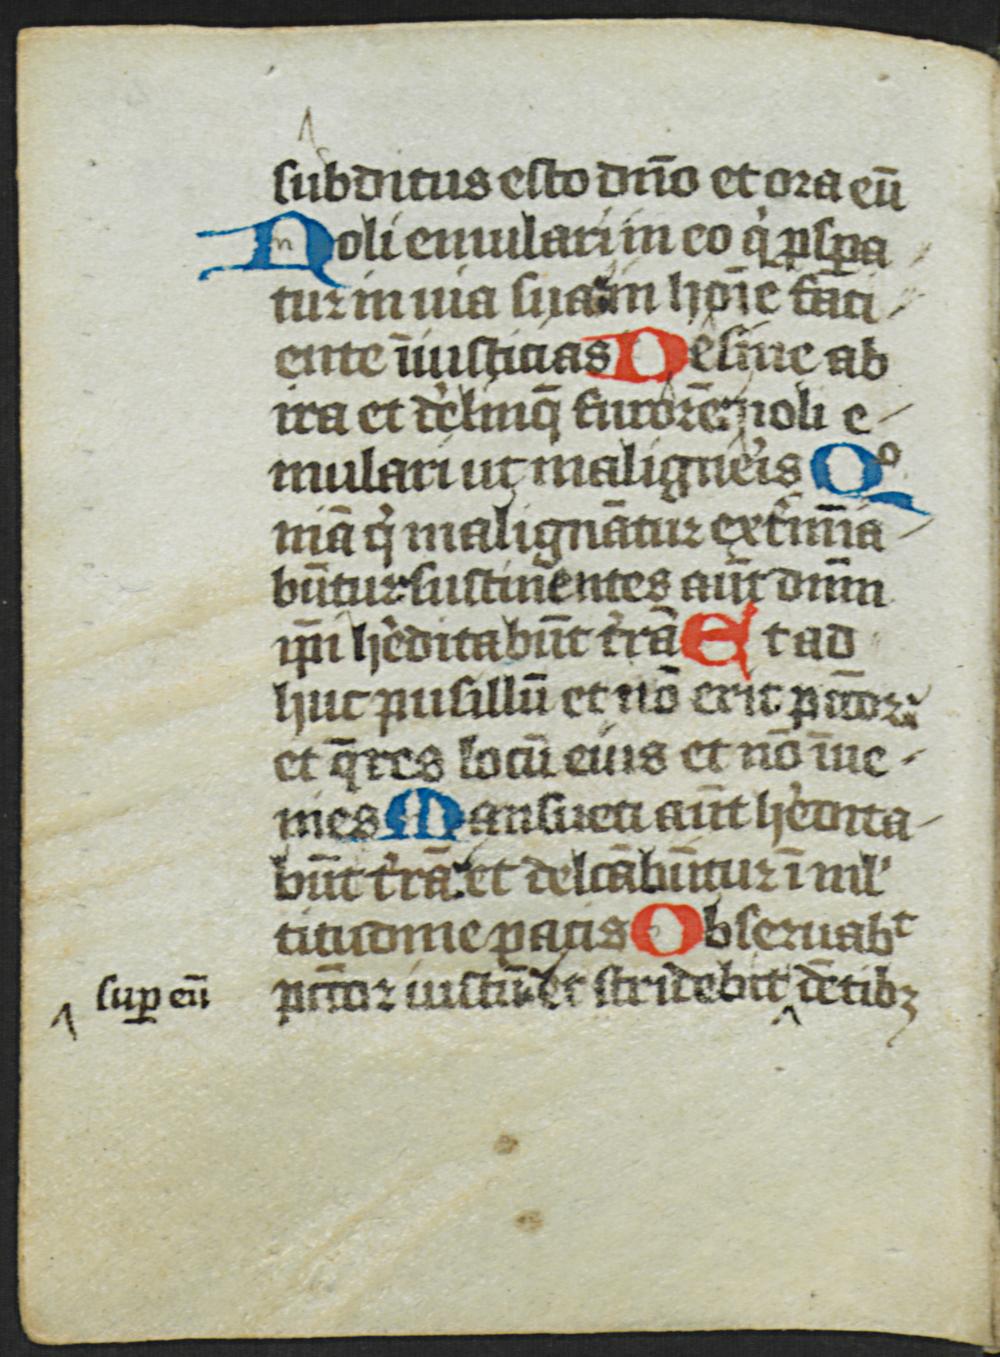 subditus esto dn̄o et ora eū
Noli emulari in eo q̇ ꝓsꝑa
tur in uia sua in hoīe faci
ente īiusticias Desine ab
ira et de͛linq̄ furorē noli e
mulari ut maligneris Qͦ
niā q̇ malignātur ext̄mīa
būtur sustinentes aūt dnm̄
ip̄i he͛ditabūt t͛rā Et ad
huc pusillū et nō erit pc̄coꝝ
et q̄res locū eius et nō īue
nies Mansueti aūt he͛dita
būt t͛rā et delcābūtur ī mlʼ
titudine pacis Obseruabᵗ
pc̄cor iustū et stridebit dētibꝫ
suꝑ eū